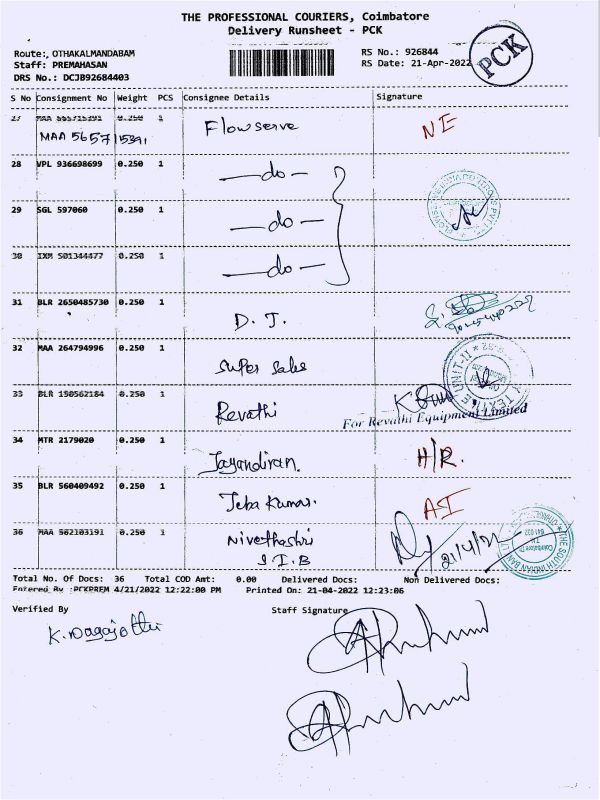 THE PROFESSIONAL COURIERS, Coimbatore
Delivery Runsheet - PCK
PCK
Route:, OTHAKALMANDABAM
RS No.: 926844
Staff: PREMAHASAN
RS Date: 21-Apr-2022
DRS No.: DCJB92684403
S No Consignment No Weight PCS Consignee Details Signature
27 0.250 1 Flowserve NE
MAA 565715391
28 VPL 936698699 0.250 1 —do—
29 SGL 597060 0.250 1 —do—
30 IXM 501344477 0.250 1 —do—
31 BLR 2650485730 0.250 1 D. J.
32 MAA 264794996 0.250 1 Super Sales
UNIT-II
33 BLR 190562184 0.250 1 Revathi
For Revathi Equipment Limited
34 MTR 2179020 0.250 1 Jayandiran. H/R.
35 BLR 560409492 0.250 1 Jeba Kumar. AI
36 MAA 562103191 0.250 1 Nivethashri
S.I.B 21/4/22
THE SOUTH INDIAN BANK
Coimbatore Dt
641 032
Total No. Of Docs: 36 Total COD Amt: 0.00 Delivered Docs: Non Delivered Docs:
Entered By :PCKPREM 4/21/2022 12:22:00 PM Printed On: 21-04-2022 12:23:06
Verified By
Staff Signature